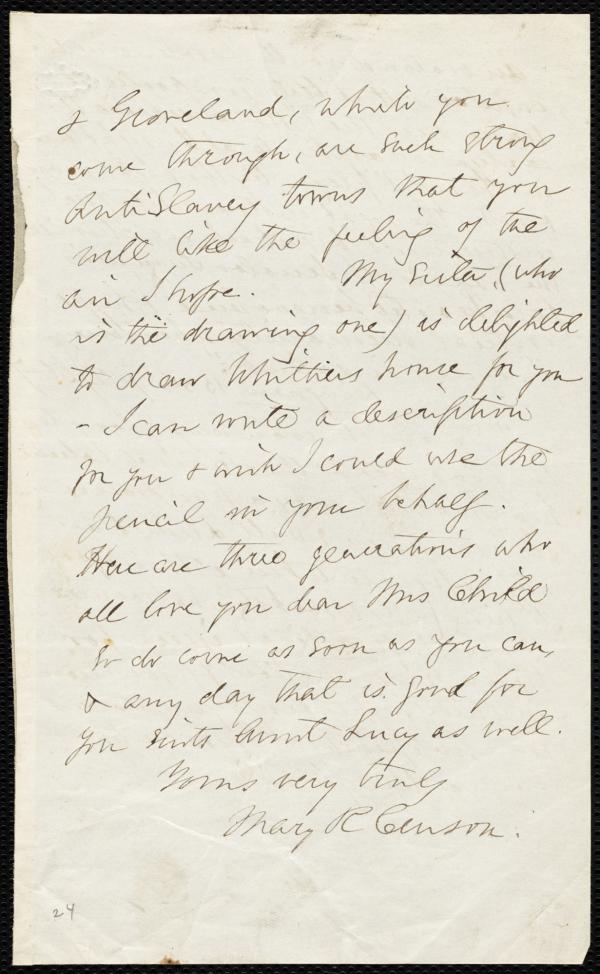 & Groveland, which you
come through, are such strong
AntiSlavery towns that you
will like the feeling of the
air I hope. My sister, (who
is the drawing one) is delighted
to draw Whittiers house for you
- I can write a description
for you & wish I could use the
pencil in your behalf.
Here are three generations who
all love you dear Mrs Child
So do come as soon as you can,
& any day that is good for
you suits Aunt Lucy as well.
Yours very truly
Mary R Censon.
24